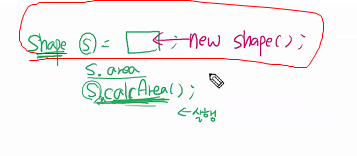 Shape s = ; new Shape();
s. area
s.calcArea();
←실행